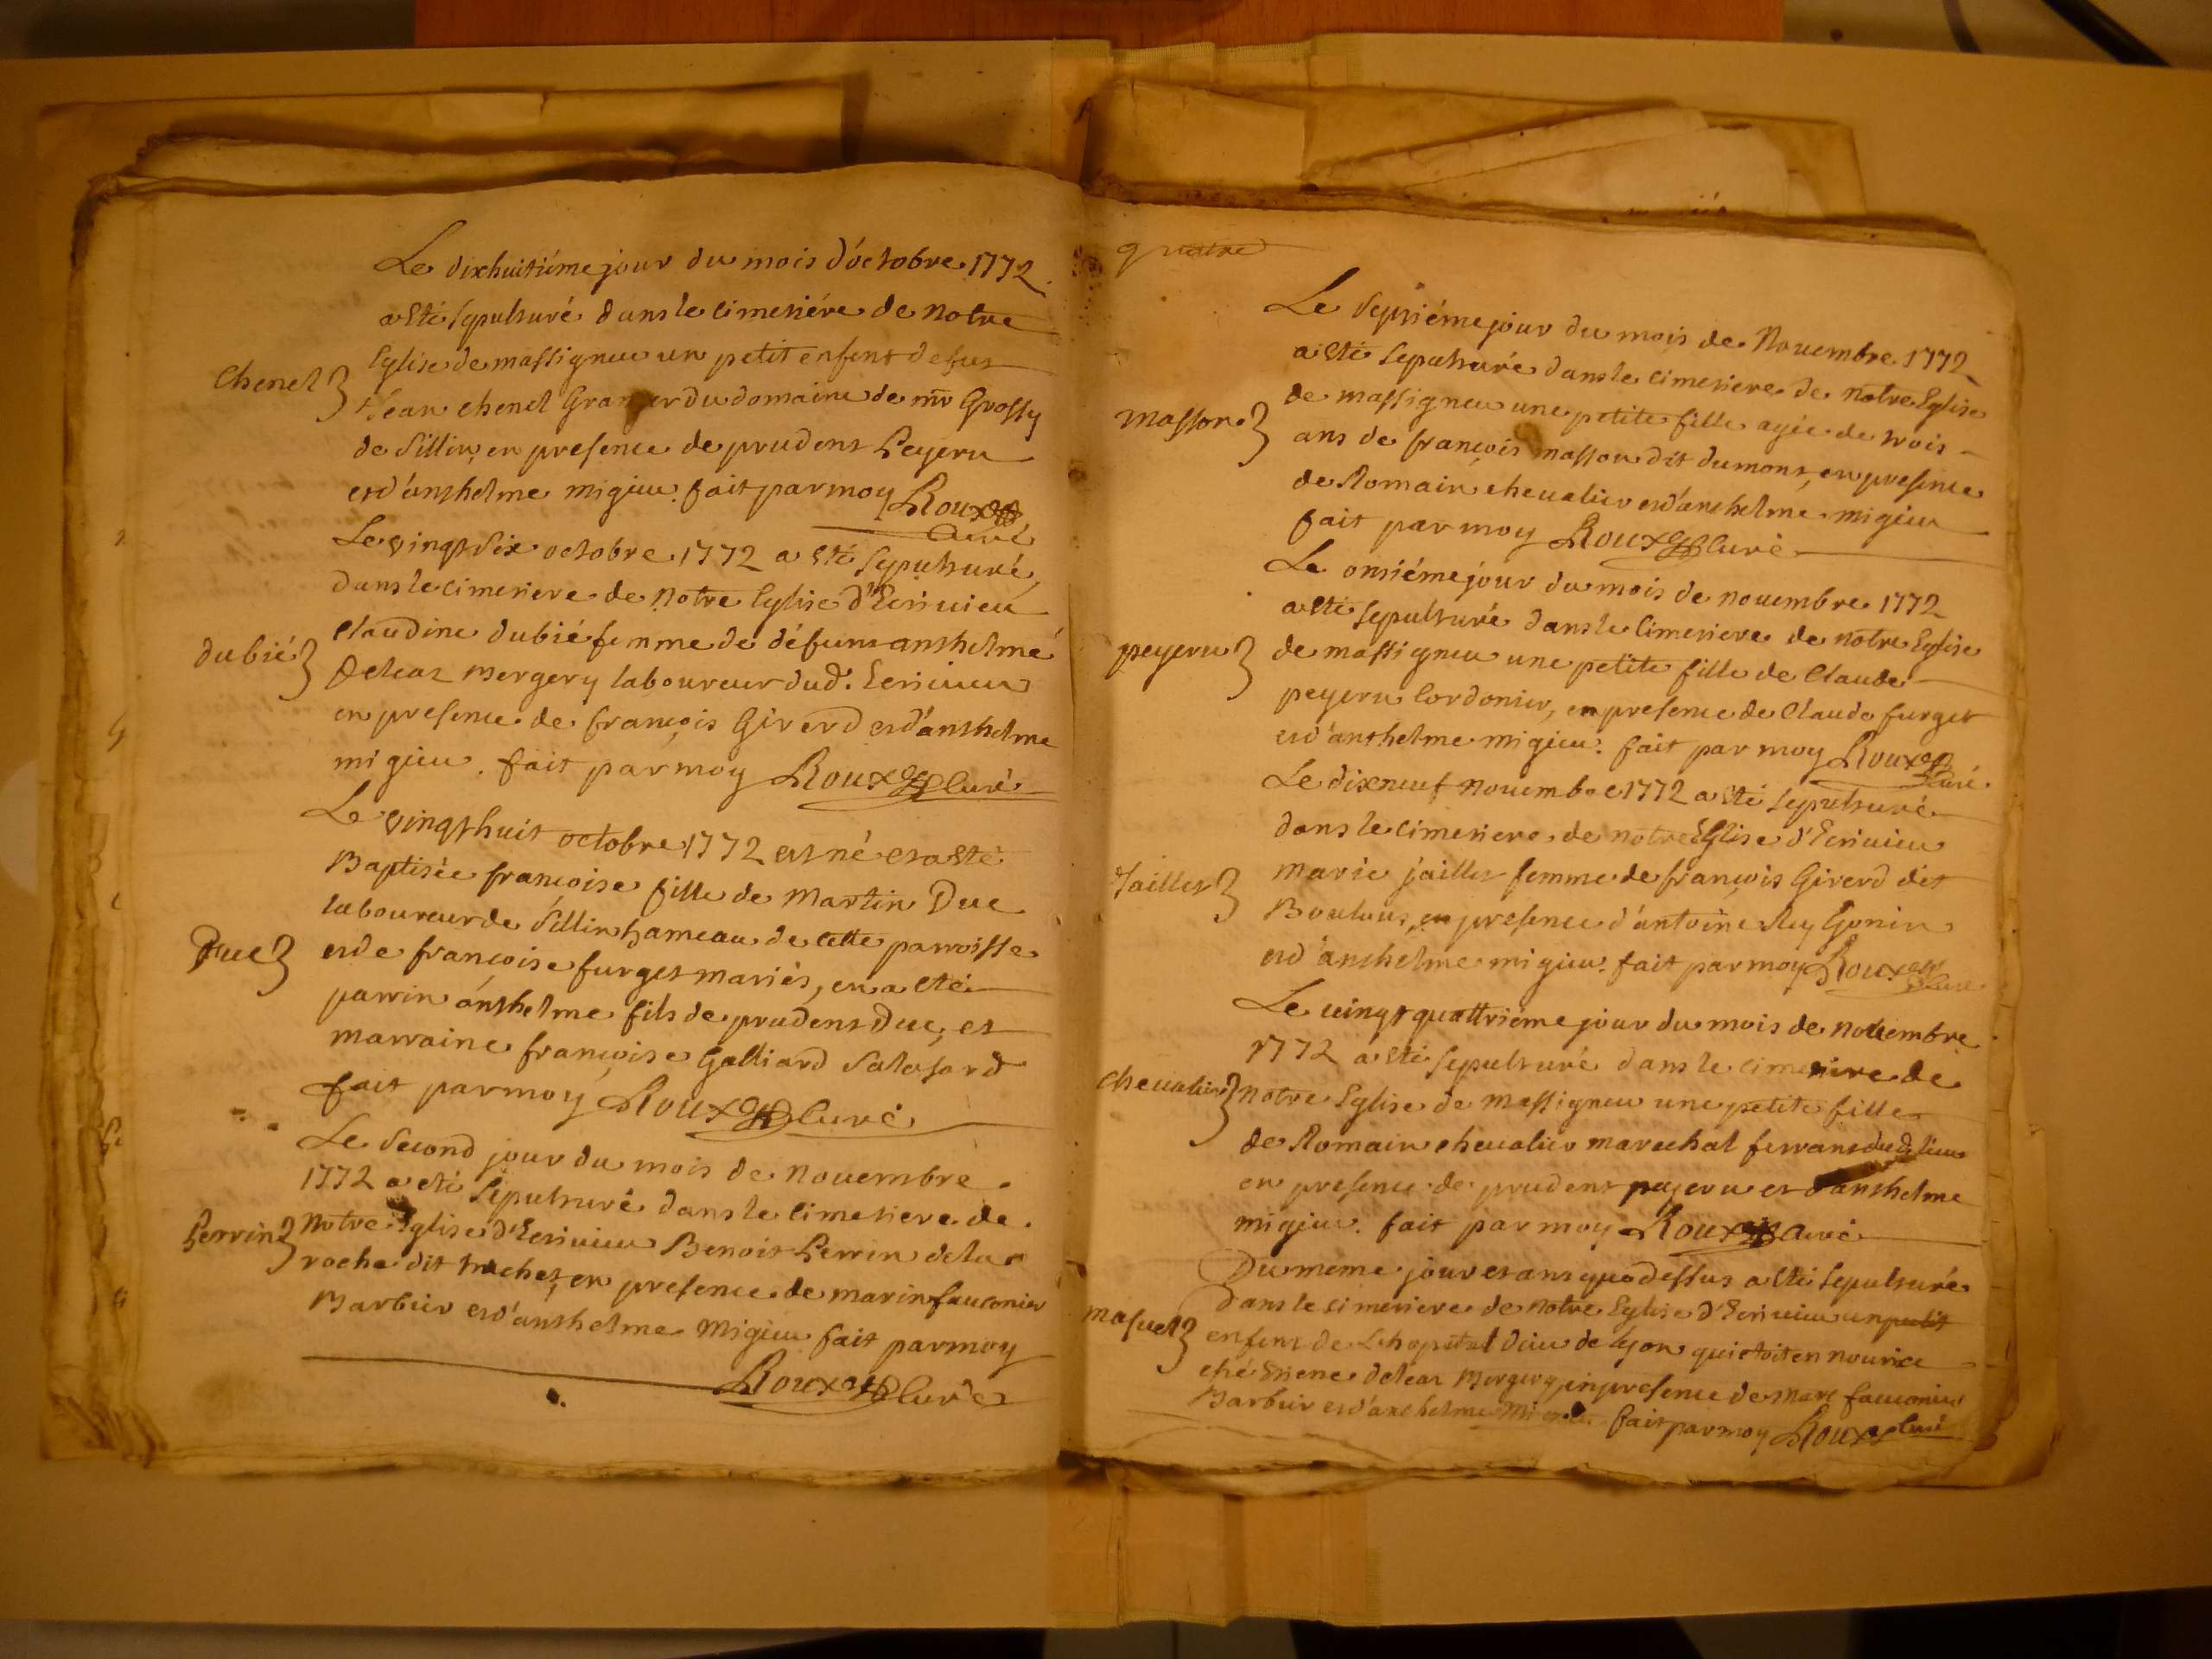 Le dixhuitiéme jour du mois d'octobre 1772
a esté sepulturé dans le cimetiére de notre
Eglise de massigneu un petit enfent de fut
Chenel
Jean chenel Granger du domaine de mr Grossy
de Sillin, en presence de prudent Peyeru
et d'anthelme migieu. fait par moy Roux
Curé
Le vingt six octobre 1772 a esté sepulturé,
dans le cimetiere de notre Eglise d'Ecrivieu
dubié
Claudine dubié femme de défunt anthelme
Deleaz mergery laboureur dud. Ecrivieu
en presence de françois Girerd et d'anthelme
migieu. fait par moy Roux Curé
Le vingt huit octobre 1772 est né et a esté
Baptisée françoise fille de Martin Duc
laboureur de Sillin hameau de cette parroisse
Duc
et de françoise furget mariés, en a eté
parrin anthelme fils de prudent Duc, et
marraine françoise Galliard Salasord
fait par moy Roux Curé
Le Second jour du mois de Novembre
1772 a eté sepulturé dans le cimetiere de
Perrin
Notre Eglise d'Ecrivieu Benoit Perrin dela
roche dit trachet, en presence de marin fauconier
Barbier et d'anthelme Migieu fait par moy
Roux Curé
quatre
Le Septiéme jour du mois de Novembre 1772
a esté sepulturé dans le cimetiere de notre Eglise
de massigneu une petite fille agée de trois
Masson
ans de françois masson dit dumont, en presence
de Romain chevalier et d'anthelme migieu
fait par moy Roux Curé
Le onsiéme jour du mois de novembre 1772
a esté sepulturé dans le cimetiere de notre Eglise
peyeru
de massigneu une petite fille de Claude
peyeru Cordonier, en presence de Claude furget
et d'anthelme migieu. fait par moy Roux
Curé
Le dixneuf novembre 1772 a esté sepulturé
dans le cimetiere de notre Eglise d'Ecrivieu
Jaillet
Marie jaillet femme de françois Girerd dit
Boulout, en presence d'antoine Rey Gonin
et d'anthelme migieu. fait par moy Roux
Curé
Le vingt quattriéme jour du mois de novembre
1772 a esté sepulturé dans le cimetiere de
Chevalier
notre Eglise de Massigneu une petite fille
de Romain chevalier marechal ferrant dud. lieu
en presence de prudent peyeru et d'anthelme
migieu. fait par moy Roux Curé
Du meme jour et ans que dessus a esté sepulturé
dans le cimetiere de notre Eglise d'Ecrivieu un petit
Masuel
enfent de L'hopital dieu de lyon qui etoit en nourice
ché Etiene deleaz Mergery, en presence de Marc fauconier
Barbier et d'anthelme Migieu. fait par moy Roux Curé